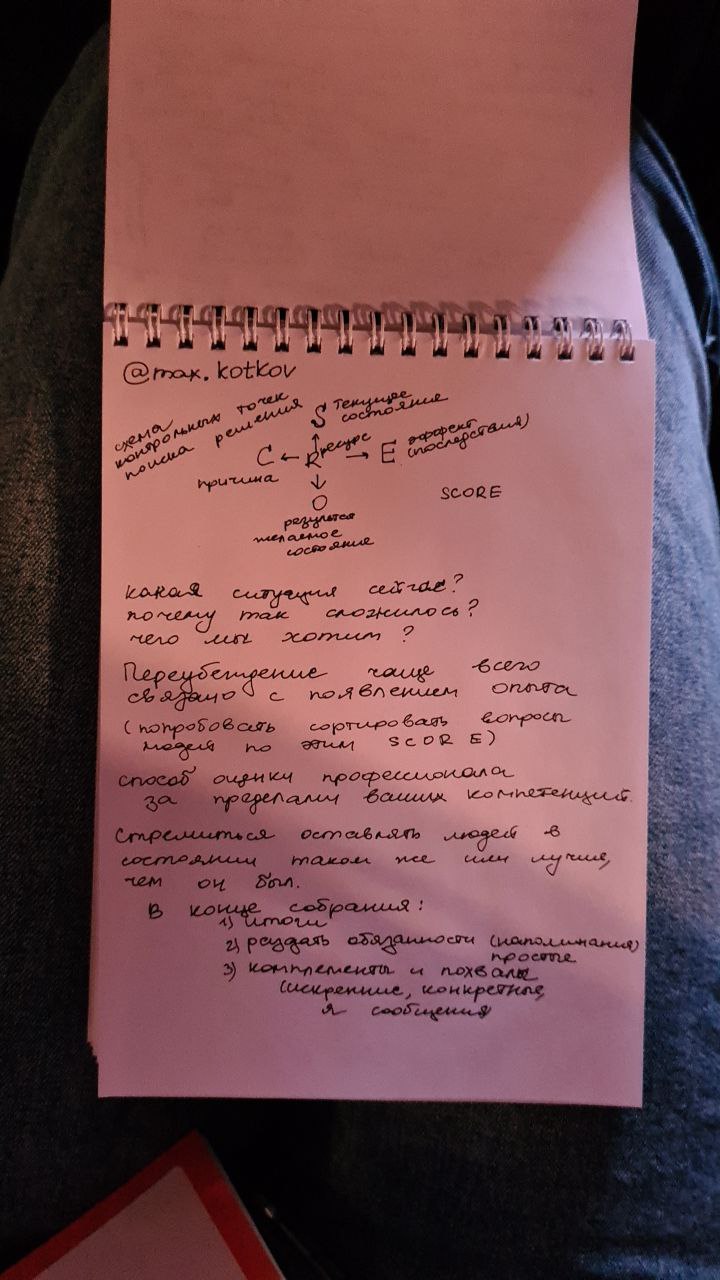 @max.kotkov
схема
контрольных точек
поиска решения
S текущее
состояние
ресурс
C ← R → E эффект
(последствия)
причина
O
результат
желаемое
состояние
SCORE
какая ситуация сейчас?
почему так сложилось?
чего мы хотим?
Переубеждение чаще всего
связано с появлением опыта
(попробовать сортировать вопросы
людей по этим SCORE)
способ оценки профессионала
за пределами ваших компетенций.
стремиться оставлять людей в
состоянии таком же или лучше,
чем он был.
В конце собрания:
1) итоги
2) раздать обязанности (напоминания)
простые
3) комплементы и похвалы
(искренние, конкретные,
я сообщения